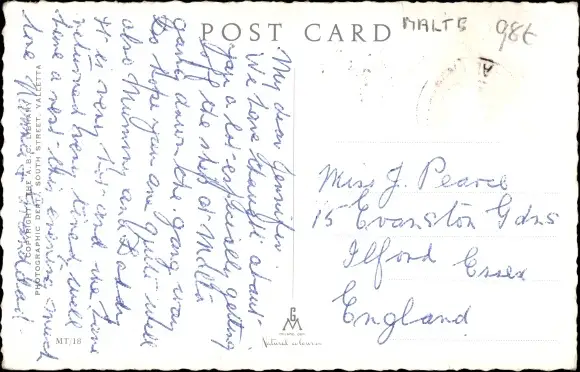 POST CARD
MALTE
98t
My dear Jennifer.
We have thought about
you a lot especially getting
off the ship at Malta
going down the gang way
Do hope you are quite well
also Mummy and Daddy
It is very hot and we have
returned very tired will
have a rest this evening much
love
Miss J. Pearce
15 Evanston Gdns
Ilford Essex
England
COPYRIGHT THE A.B.C. LIBRARY
PHOTOGRAPHIC DEPT. SOUTH STREET, VALLETTA
MT/18
Natural colour